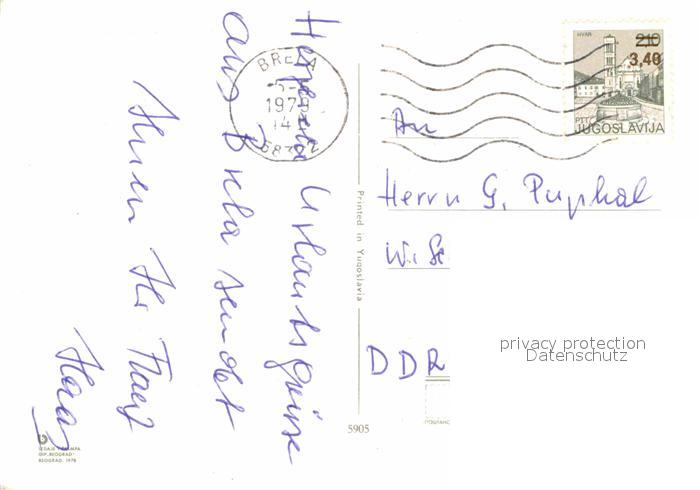 Herzliche Urlaubsgrüsse
aus Brela sendet
Ihnen Ihr
Haas
BRELA
1979
14
58322
HVAR
2,10
3,40
PTT
JUGOSLAVIJA
An
Herrn G. Puphal
W. Sc
DDR
Printed in Yugoslavia
5905
privacy protection
Datenschutz
IZDAJE I ŠTAMPA
GIP „BEOGRAD"
BEOGRAD, 1978